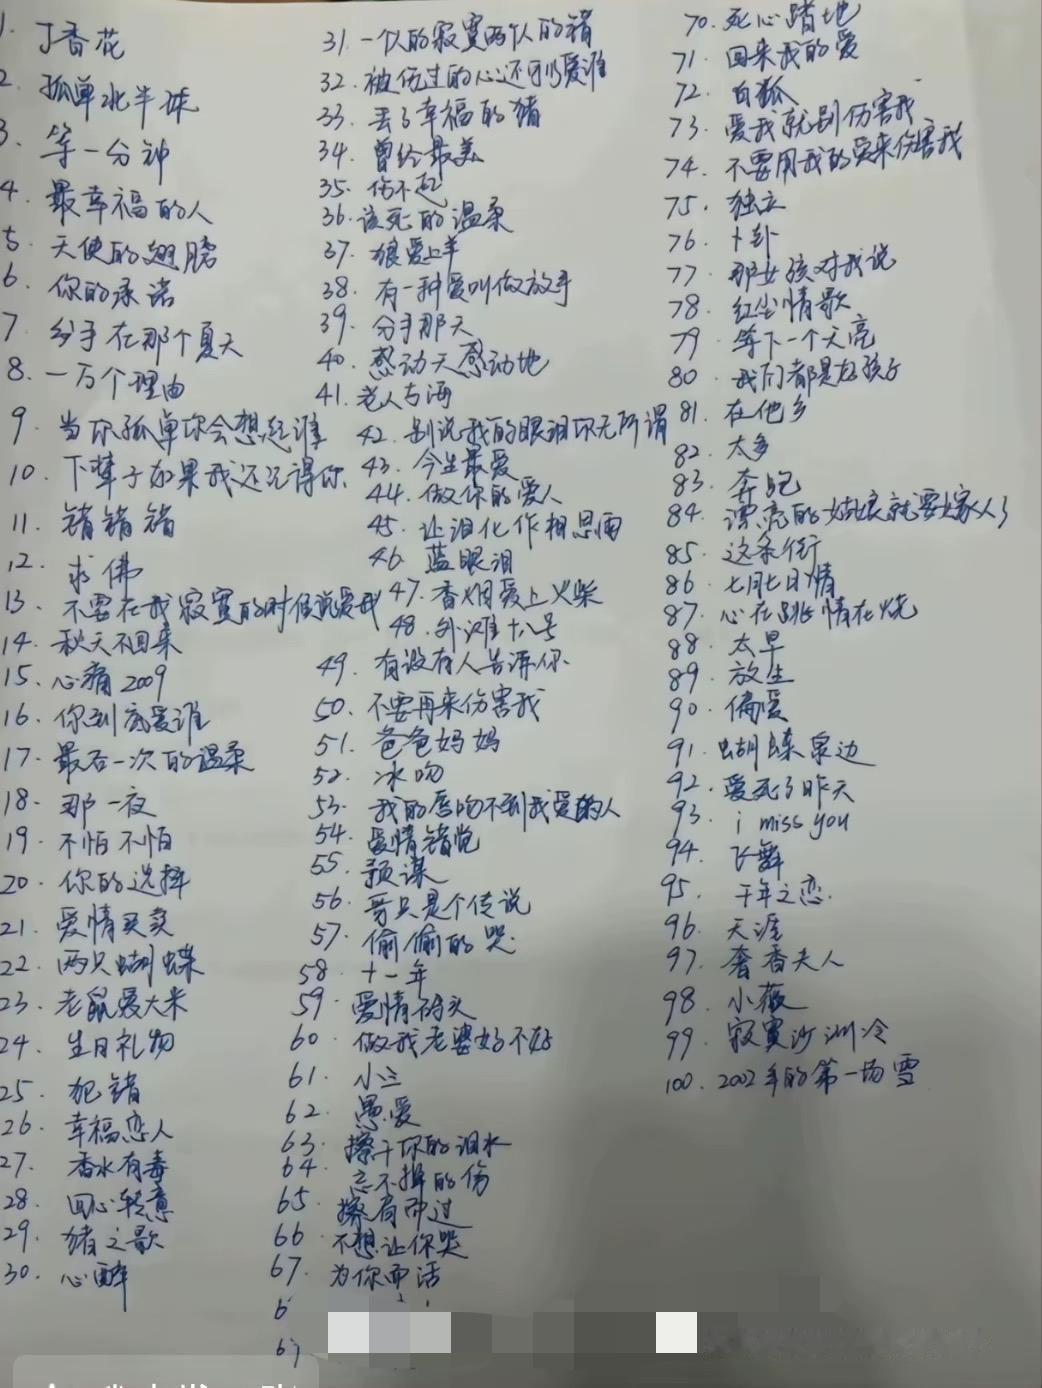 1. 丁香花
2. 孤单北半球
3. 等一分钟
4. 最幸福的人
5. 天使的翅膀
6. 你的承诺
7 分手在那个夏天
8. 一万个理由
9. 当你孤单你会想起谁
10. 下辈子如果我还记得你
11. 错错错
12. 求佛
13. 不要在我寂寞的时候说爱我
14. 秋天不回来
15. 心痛2009
16. 你到底爱谁
17. 最后一次的温柔
18. 那一夜
19. 不怕不怕
20. 你的选择
21. 爱情买卖
22. 两只蝴蝶
23. 老鼠爱大米
24. 生日礼物
25. 犯错
26. 幸福恋人
27. 香水有毒
28. 回心转意
29. 猪之歌
30. 心醉
31. 一个人的寂寞两个人的错
32. 被伤过的心还可以爱谁
33. 丢了幸福的猪
34. 曾经最美
35. 伤不起
36. 该死的温柔
37. 狼爱上羊
38. 有一种爱叫做放手
39. 分手那天
40. 感动天感动地
41. 老人与海
42. 别说我的眼泪你无所谓
43. 今生最爱
44. 做你的爱人
45. 让泪化作相思雨
46. 蓝眼泪
47. 香烟爱上火柴
48. 外滩十八号
49. 有没有人告诉你
50. 不要再来伤害我
51. 爸爸妈妈
52. 冰吻
53. 我的唇吻不到我爱的人
54. 爱情错觉
55. 预谋
56. 哥只是个传说
57. 偷偷的哭
58. 十一年
59. 爱情码头
60. 做我老婆好不好
61. 小三
62. 愚爱
63. 擦干你的泪水
64. 忘不掉的伤
65. 擦肩而过
66 不想让你哭
67. 为你而活
6
69
70. 死心踏地
71. 回来我的爱
72. 白狐
73. 爱我就别伤害我
74. 不要用我的爱来伤害我
75. 独立
76. 卜卦
77. 那女孩对我说
78. 红尘情歌
79. 等下一个天亮
80. 我们都是好孩子
81. 在他乡
82. 太多
83. 奔跑
84. 漂亮的姑娘就要嫁人了
85. 这条街
86. 七月七日情
87. 心在跳情在烧
88. 太早
89. 放生
90. 偏爱
91. 蝴蝶泉边
92. 爱死了昨天
93. i miss you
94. 飞舞
95. 千年之恋.
96. 天涯
97. 奢香夫人
98. 小薇
99. 寂寞沙洲冷
100. 2002年的第一场雪